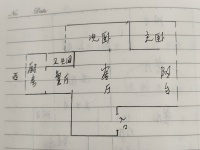 次卧
主卧
卫生间
西
厨房
餐厅
客厅
阳台
入户